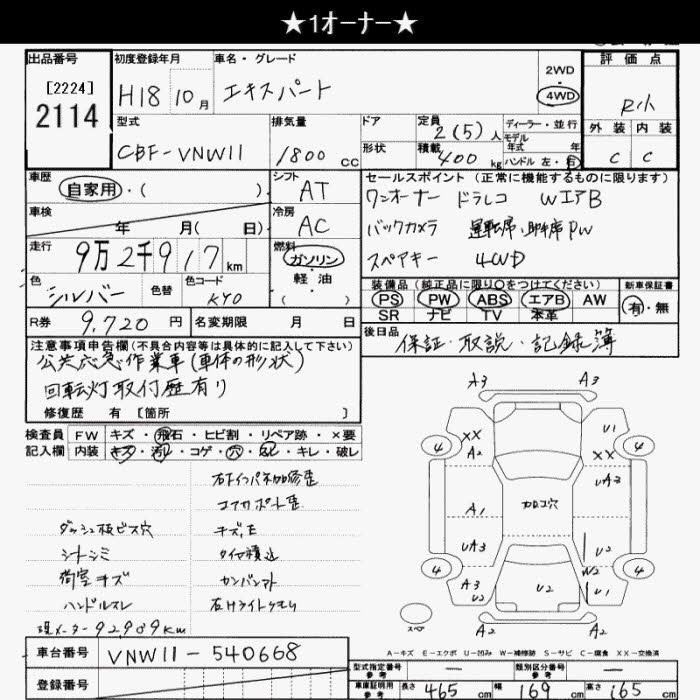 ★1オーナー★
出品番号
[2224]
2114
初度登録年月
H18 10月
車名・グレード
エキスパート
2WD
4WD
評価点
R小
外装 内装
C C
型式
CBF-VNW11
排気量
1800 CC
ドア
形状
定員
2(5)人
積載
400 kg
ディーラー・並行
モデル
年式 年
ハンドル 左・右
車歴
自家用・( )
シフト
AT
車検
年 月( 日)
冷房
AC
走行
9万2千917km
燃料
ガソリン
軽油
( )
色
シルバー
色替
色コード
KY0
R券
9,720円
名変期限 月 日
セールスポイント(正常に機能するものに限ります)
ワンオーナー ドラレコ WエアB
バックカメラ 運転席、助手席PW
スペアキー 4WD
装備品(純正品に限り○をつけてください)
PS PW ABS エアB AW
SR ナビ TV 本革
新車保証書
有・無
後日品
保証・取説・記録簿
注意事項申告欄(不具合内容等は具体的に記入して下さい)
公共応急作業車(車体の形状)
回転灯取付歴有り
修復歴 有 [箇所 ]
検査員
記入欄
FW キズ・飛石・ヒビ割・リペア跡・×要
内装 キズ・汚れ・コゲ・穴・スレ・キレ・破レ
ダッシュ板ビス穴
シートシミ
荷室キズ
ハンドルスレ
現メーター92989km
キズ,E
タイヤ積込
右ヘッドライトクモリ
A3 A3
XX
A2
U1
4 4
UA3
A1
カロコ穴
UA3
U2
W2
4 4
A3
U2
U2
U1
スペア
A2 A2
A-キズ E-エクボ U-凹み W-補修跡 S-サビ C-腐食 XX-交換済
車台番号
VNW11-540668
登録番号
型式指定番号
参考
—
類別区分番号
参考
—
車庫証明用
参考
長さ 465 cm 幅 169 cm 高さ 165 cm